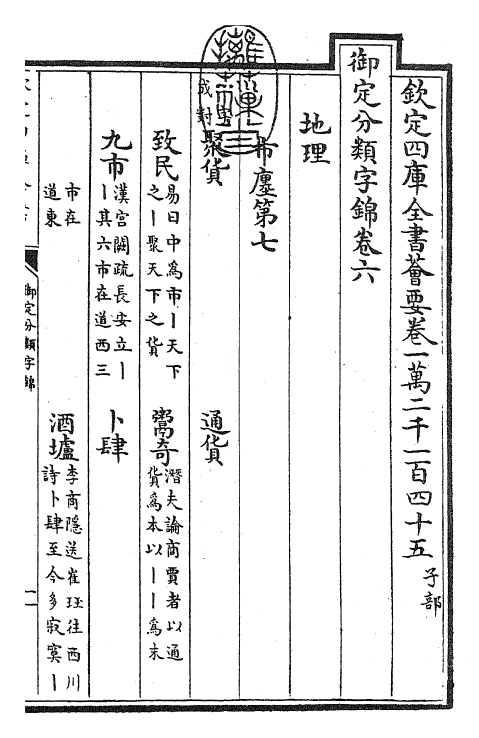 欽定四庫全書薈要卷一萬二千一百四十五 子部
御定分類字錦卷六
地理
市廛第七
成對
聚貨 通貨
致民 易日中為市丨天下
之丨聚天下之貨
鬻奇 潛夫論商賈者以通
貨為本以丨丨為末
九市 漢宮闕疏長安立丨
丨其六市在道西三
卜肆
市在
道東
酒壚 李商隱送崔珏往西川
詩卜肆至今多寂寞丨
御定分類字錦